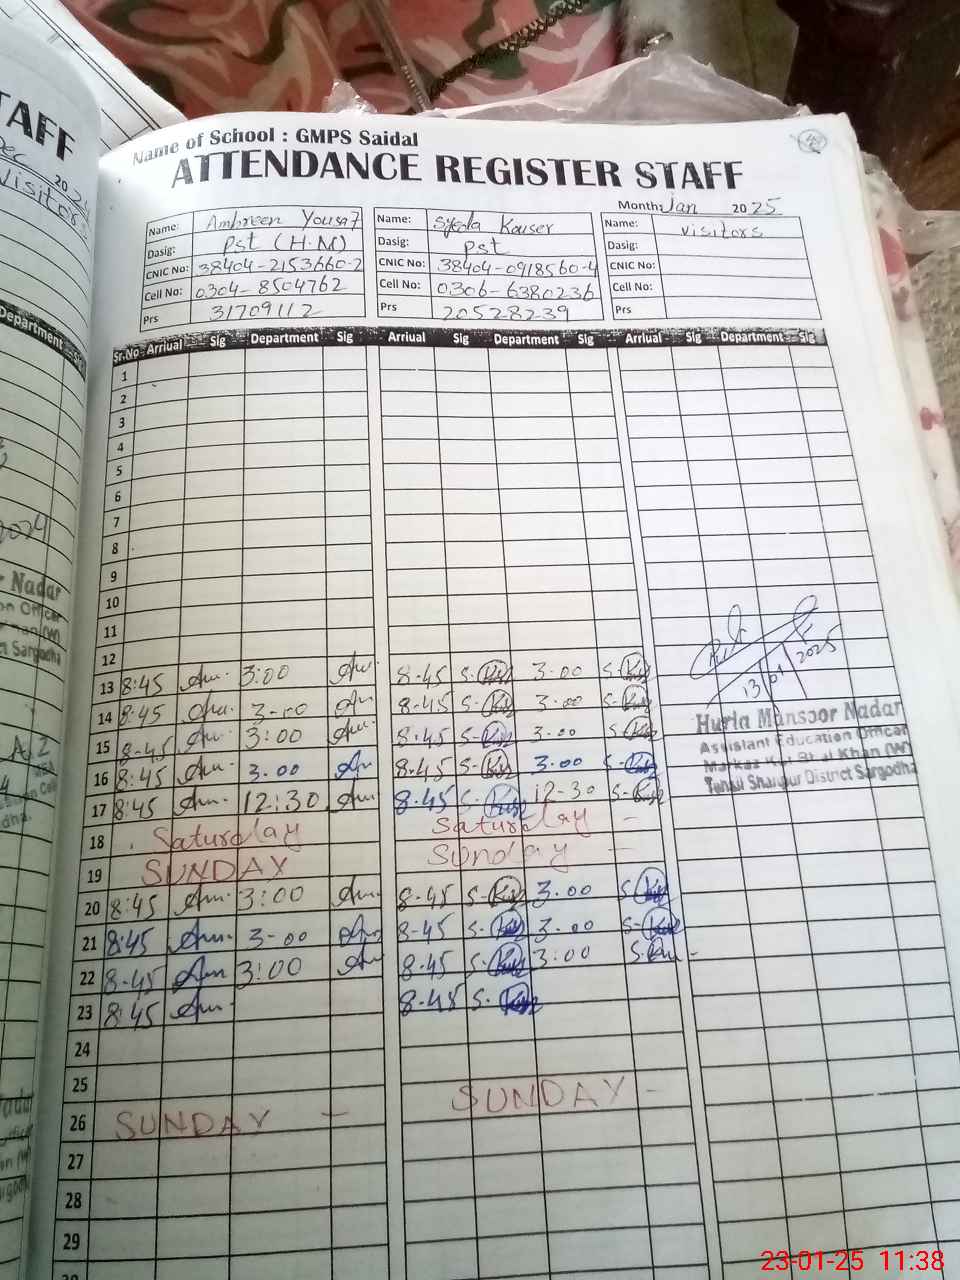 Name of School : GMPS Saidal
ATTENDANCE REGISTER STAFF
Month: Jan 2025
Name: Ambreen Yousaf Name: Syeda Kouser Name: visitors
Dasig: Pst (H.M) Dasig: Pst Dasig:
CNIC No: 38404-2153660-2 CNIC No: 38404-0918560-4 CNIC No:
Cell No: 0304-8504762 Cell No: 0306-6380236 Cell No:
Prs 31709112 Prs 20528239 Prs
Sr.No Arriual Sig Department Sig Arriual Sig Department Sig Arriual Sig Department Sig
1
2
3
4
5
6
7
8
9
10
11
12
13 8:45 Am. 3:00 Am. 8-45 S. 3-00 S.
14 8:45 Am. 3-00 Am 8-45 S. 3-00 S.
15 8-45 Am. 3:00 Am. 8:45 S. 3-00 S.
16 8:45 Am. 3.00 Am 8.45 S. 3.00 S.
17 8:45 Am. 12:30 Am 8.45 S. 12-30 S.
18 Saturday Saturday -
19 SUNDAY Sunday -
20 8:45 Am. 3:00 Am. 8-45 S. 3.00 S.
21 8:45 Am. 3-00 Am 8-45 S. 3.00 S.
22 8-45 Am 3:00 Am 8.45 S. 3:00 S.
23 8:45 Am. 8-45 S.
24
25
26 SUNDAY - SUNDAY -
27
28
29
13 01 2025
Huria Mansoor Nadar
Assistant Education Officer
Tehsil Shahpur District Sargodha
STAFF
Dec 2024
Visitors
Department Sig
2024
Nadar
on Officer
Sargodha
23-01-25 11:38